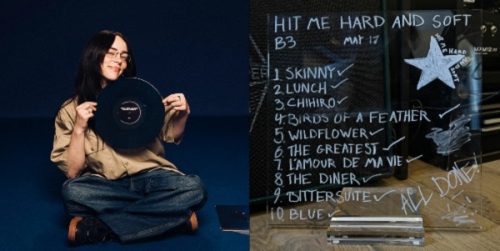 HIT ME HARD AND SOFT
B3 MAY 17
HIT ME HARD AND SOFT
1 SKINNY ✓
2 LUNCH ✓
3 CHIHIRO ✓
4. BIRDS OF A FEATHER ✓
5. WILDFLOWER ✓
6. THE GREATEST ✓
7. L'AMOUR DE MA VIE ✓
8. THE DINER ✓
9. BITTERSUITE ✓
10. BLUE ✓
ALL DONE!